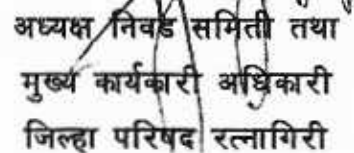 अध्यक्ष निवड समिती तथा
मुख्य कार्यकारी अधिकारी
जिल्हा परिषद रत्नागिरी